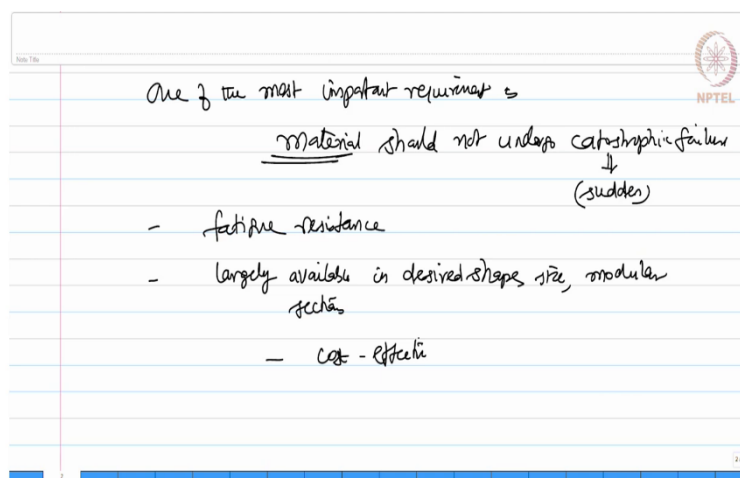 Note Title
NPTEL
One of the most important requirement is
material should not undergo catastrophic failure
(sudden)
- fatigue resistance
- largely available in desired shapes, size, modular
sections
- cost-effective
2